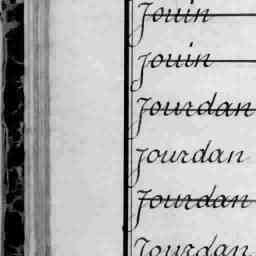 Jouin
Jouin
Jourdan
Jourdan
Jourdan
Jourdan